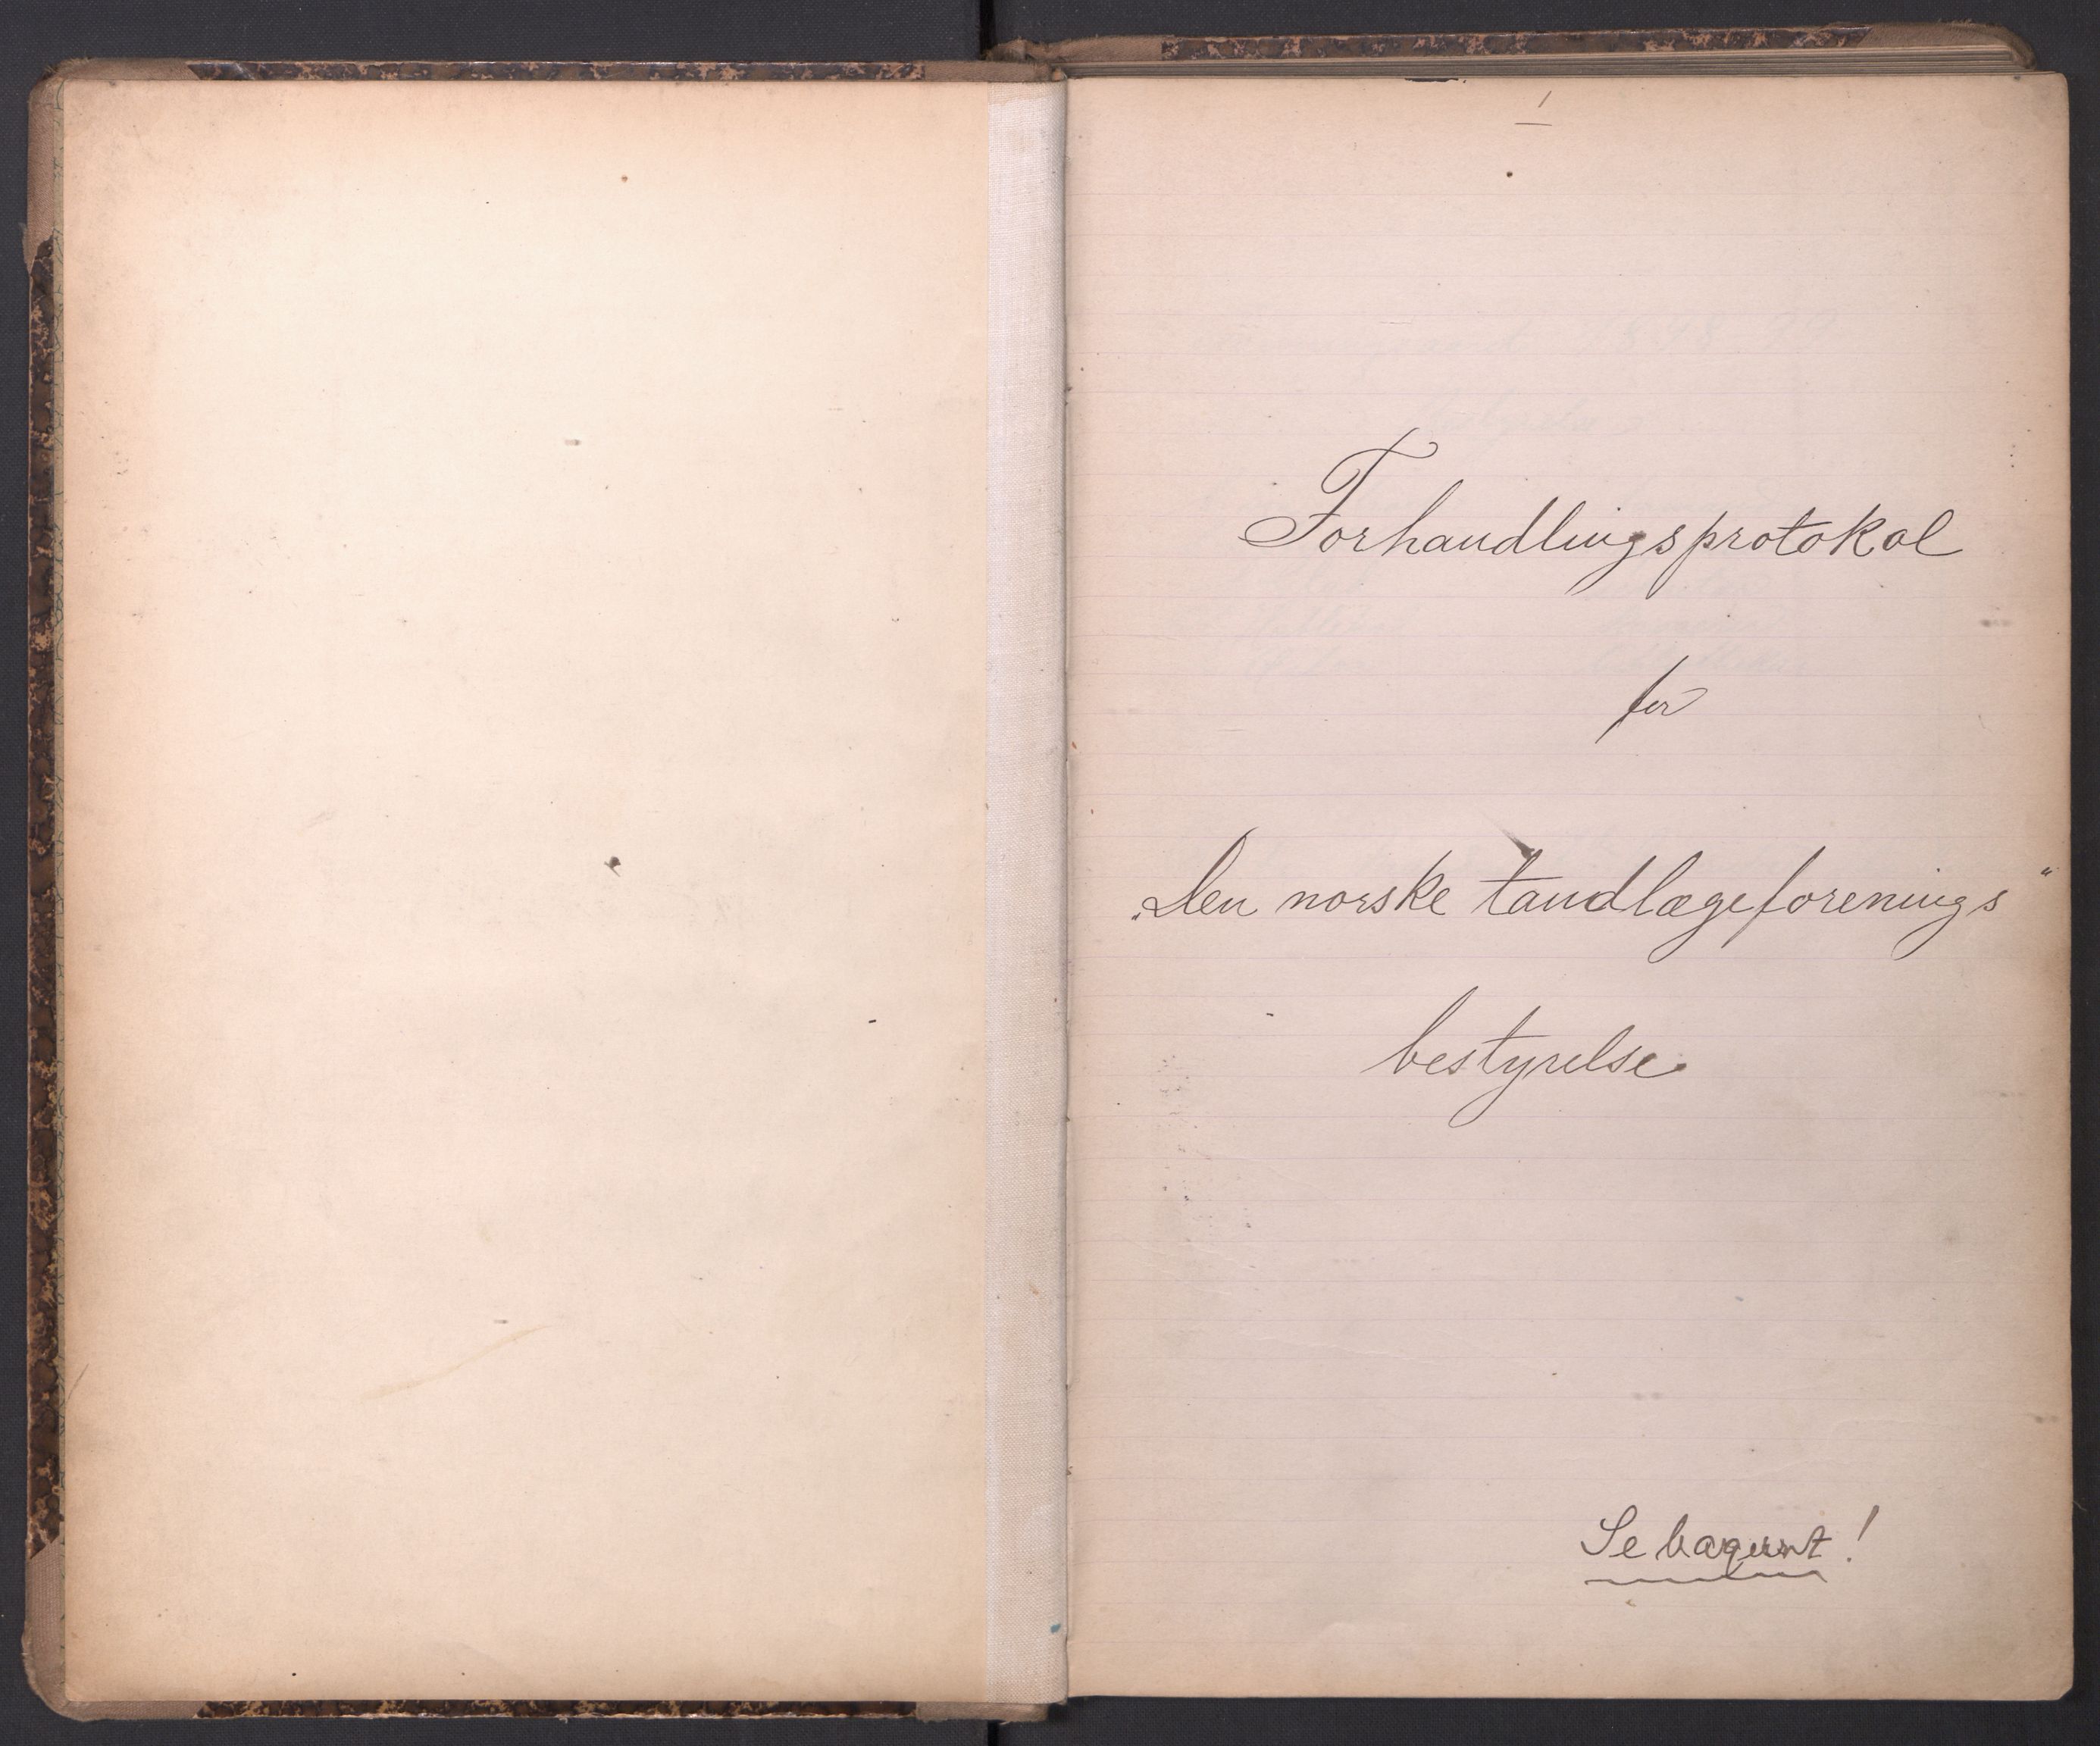 1
Forhandlingsprotokol
for
„Den norske tandlægeforenings“
bestyrelse
Se bagerst!